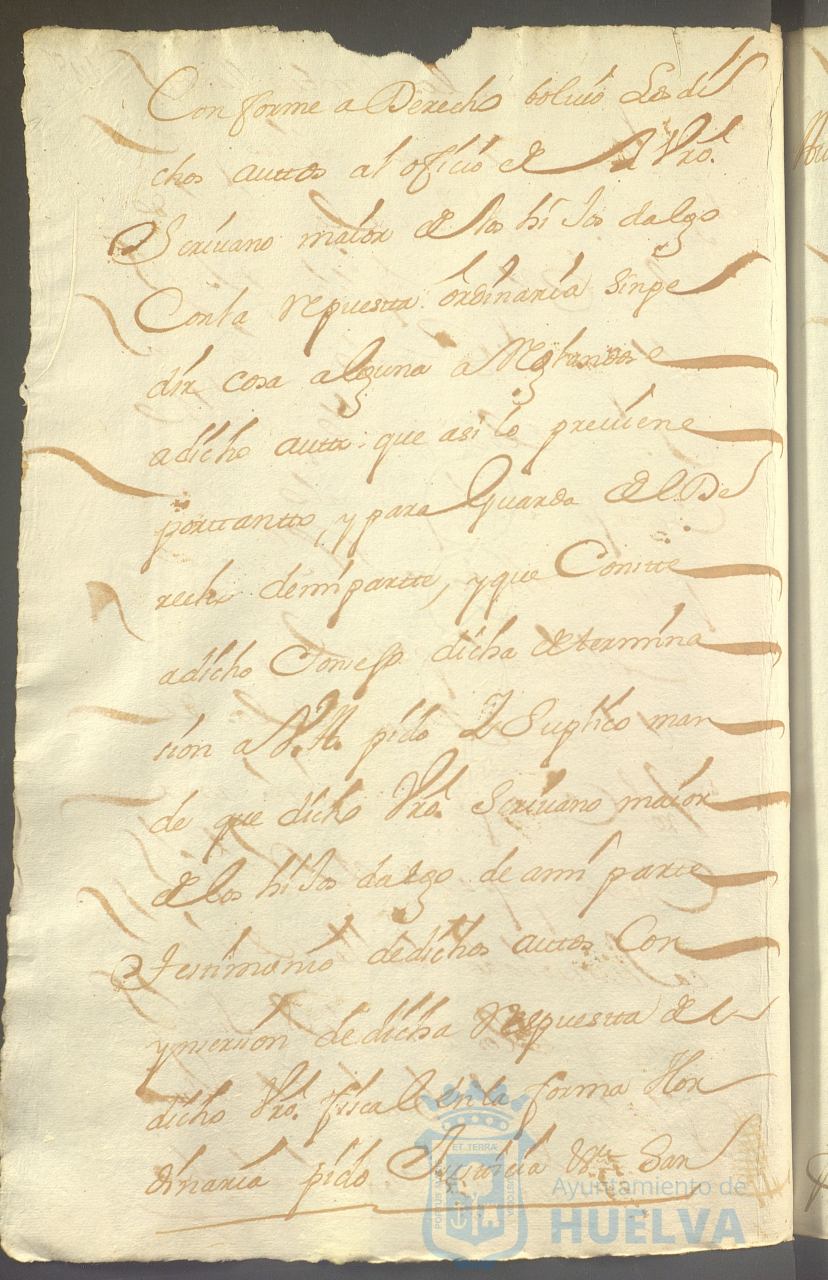 Conforme a Derecho bolvió Los di
chos auttos al oficio de Vro.
Scrivano maior de los hiJos dalgo
Con la Repuesta ordinaria Sin pe
dir cosa alguna
a dicho autto que asi lo previene
porttantto, y para Guarda del De
recho de mi partte, y que Conste
a dicho Consejo dicha determina
sion a V.A. pido Y Suplico man
de que dicho Vro. Scrivano maior
de los hiJos dalgo de a mi parte
testimonio de dichos autos Con
ynsersion de dicha Respuesta de
dicho Vro. fiscal en la forma Hor
dinaria pido Justicia &ta San
ET TERRÆ
Ayuntamiento de
HUELVA